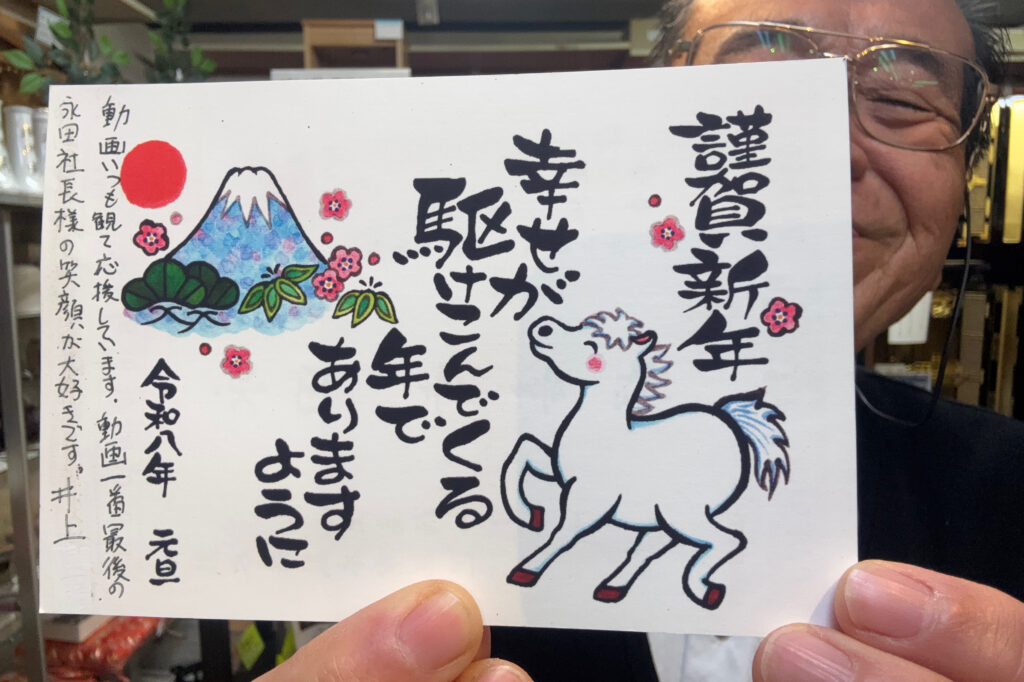 謹賀新年
幸せが
駆けこんでくる
年で
あります
ように
令和八年 元旦
動画いつも観て応援しています。動画一番最後の
永田社長様の笑顔が大好きです。井上